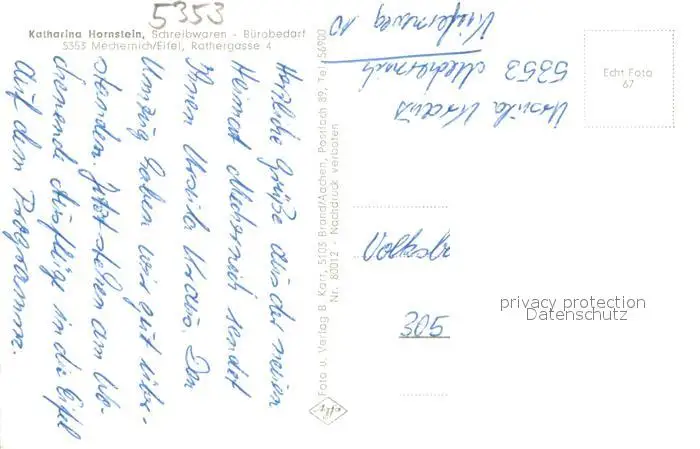 5353
Katharina Hornstein, Schreibwaren - Bürobedarf
5353 Mechernich/Eifel, Rathergasse 4
Herzliche Grüße aus der neuen
Heimat Mechernich sendet
Ihnen Ursula Kraus. Den
Umzug haben wir gut über-
standen. Jetzt stehen am Wo-
chenende Ausflüge in die Eifel
auf dem Programm.
Foto u. Verlag B. Karr, 5103 Brand/Aachen, Postfach 89, Tel. 56900
Nr. 80012 - Nachdruck verboten
Ursula Kraus
5353 Mechernich
10
Echt Foto
67
305
privacy protection
Datenschutz